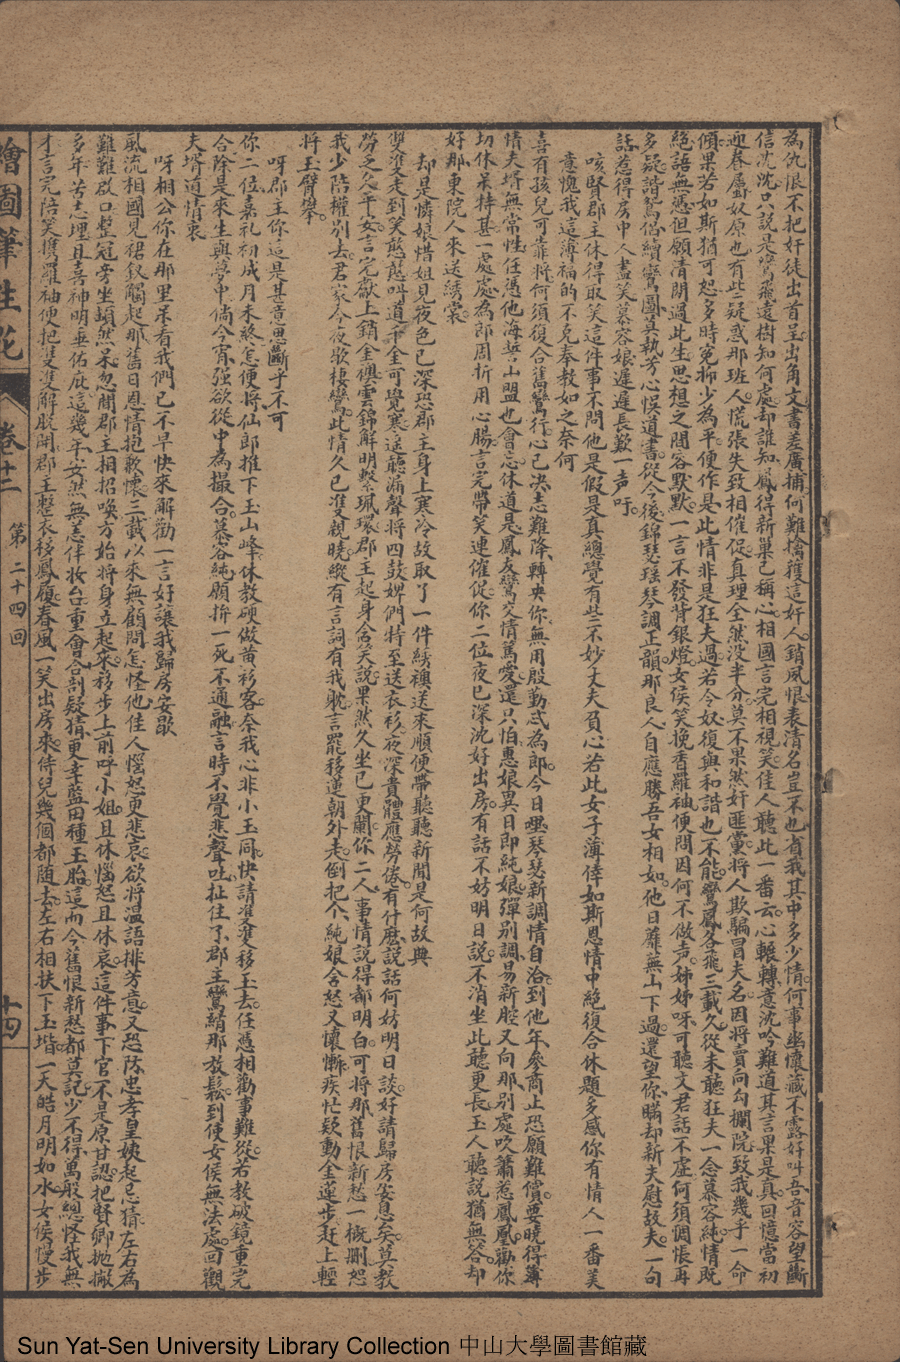 為仇恨不把奸徒出首呈出角文書差廣捕何難擒獲這奸人銷夙恨表清名豈不也省我其中多少情何事幽懷藏不露好叫吾音容望斷
信沈沈只說是鸞飛遠樹知何處却誰知鳳得新巢已稱心相國言完相視笑佳人聽此一番云心輾轉意沈吟難道其言果是真回憶當初
迎春屬奴原也有些疑惑那班人慌張失致相催促真理全然没半分莫不果然奸匪黨將人欺騙冒夫名因將賣向勾欄院致我幾乎一命
傾果若如斯猶可恕多時冤抑少為平便作是此情非是狂夫過若今奴復與和諧也不能鸞鳳各飛三載久從未聽狂夫一念慕容純情既
絕語無憑但願清閒過此生思想之間容默默一言不發背銀燈女侯笑挽香羅袖便問因何不做声姊姊呀可聽文君話不虛何須惆悵再
多疑諧鴛侶續鸞圖莫執芳心悞道書從今後錦瑟瑶琴調正韻那良人自應勝吾女相如他日蘼蕪山下過還望你瞞却新夫慰故夫一句
話惹得房中人盡笑慕容娘遲遲長歎一声吁
咳賢郡主休得取笑這件事不問他是假是真總覺有些不妙丈夫負心若此女子薄倖如斯恩情中絕復合休題多感你有情人一番美
意愧我這薄福的不克奉教如之奈何
喜有孩兒可靠將何須復合舊鸞行心已决志難降轉央你無用殷勤忒為郎今日嘿琴瑟新調情自洽到他年參商止恐願難償要曉得簿
情夫壻無常性任憑他海誓山盟也會忘休道是鳳友鸞交情篤愛還只怕惠娘異日即純娘彈別調易新腔又向那别處吹簫惹鳳凰勸你
切休呆持甚一處處為郎周折用心腸言完帶笑連催促你二位夜已深沈好出房有話不妨明日說不消坐此聽更長玉人聽說猶無答却
好那東院人來送綉裳
却是憐娘惜姐見夜色已深恐郡主身上寒冷故取了一件綉襖送來順便帶聽聽新聞是何故典
雙雙走到笑慇慇叫道千金可覺寒遥聽漏聲將四鼓婢們特至送衣衫夜深貴體應勞倦有什麽說話何妨明日談好請歸房安息矣莫教
勞乏久平安言完獻上銷金襖雲錦解明繫珮環郡主起身含笑說果然久坐已更闌你二人事情說得都明白可將那舊恨新愁一概刪恕
我少陪權别去君家今夜歇棲鸞此情久已雙親曉縱有言詞有我躭言罷移蓮朝外走倒把個純娘含怒又懷慚疾忙疑動金蓮步赶上輕
將玉臂攀
呀郡主你這是甚意思斷乎不可
你二位嘉礼初成月未終怎便將仙郎推下玉山峰休教硬做黄衫客奈我心非小玉同快請雙雙移玉去任憑相勸事難從若教破鏡重完
合除是來生與夢中倘今宵强欲從中為撮合慕容純願拚一死不通融言時不覺悲聲吐扯住了郡主鸞綃那放鬆到使女侯無法處回觀
夫壻道情衷
呀相公你在那里呆看我們已不早快來解勸一言好讓我歸房安歇
風流相國見裙釵觸起那舊日恩情抱歉懷三載以來無顧問怎怪他佳人惱怒更悲哀欲將温語排芳意又恐防忠孝皇姨起忌猜左右為
難難啟口整冠旁坐頻然呆忽聞郡主相招喚方始將身立起來移步上前呼小姐且休惱怒且休哀這件事下官不是原甘認把賢卿抛撇
多年苦志埋且喜神明垂佑庇這幾年安然無恙伴妝台重會合剖疑猜更幸藍田種玉胎這而今舊恨新愁都莫記少不得萬般總怪我無
才言完陪笑携羅袖便把雙雙解脱開郡主整衣移鳳履春風一笑出房來侍兒幾個都随去左右相扶下玉堦一天皓月明如水女侯慢步
繪圖筆生花
卷十二
第二十四回
十四
Sun Yat-Sen University Library Collection 中山大學圖書館藏